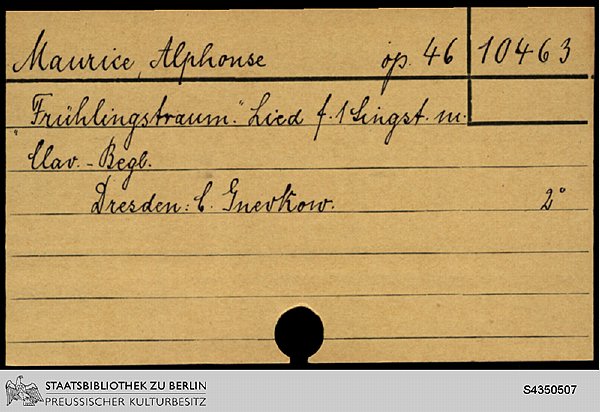 Maurice, Alphonse op. 46 10463
„Frühlingstraum." Lied f. 1 Singst. m.
Clav.-Begl.
Dresden: C. Gnevkow. 2°
STAATSBIBLIOTHEK ZU BERLIN
PREUSSISCHER KULTURBESITZ
S4350507